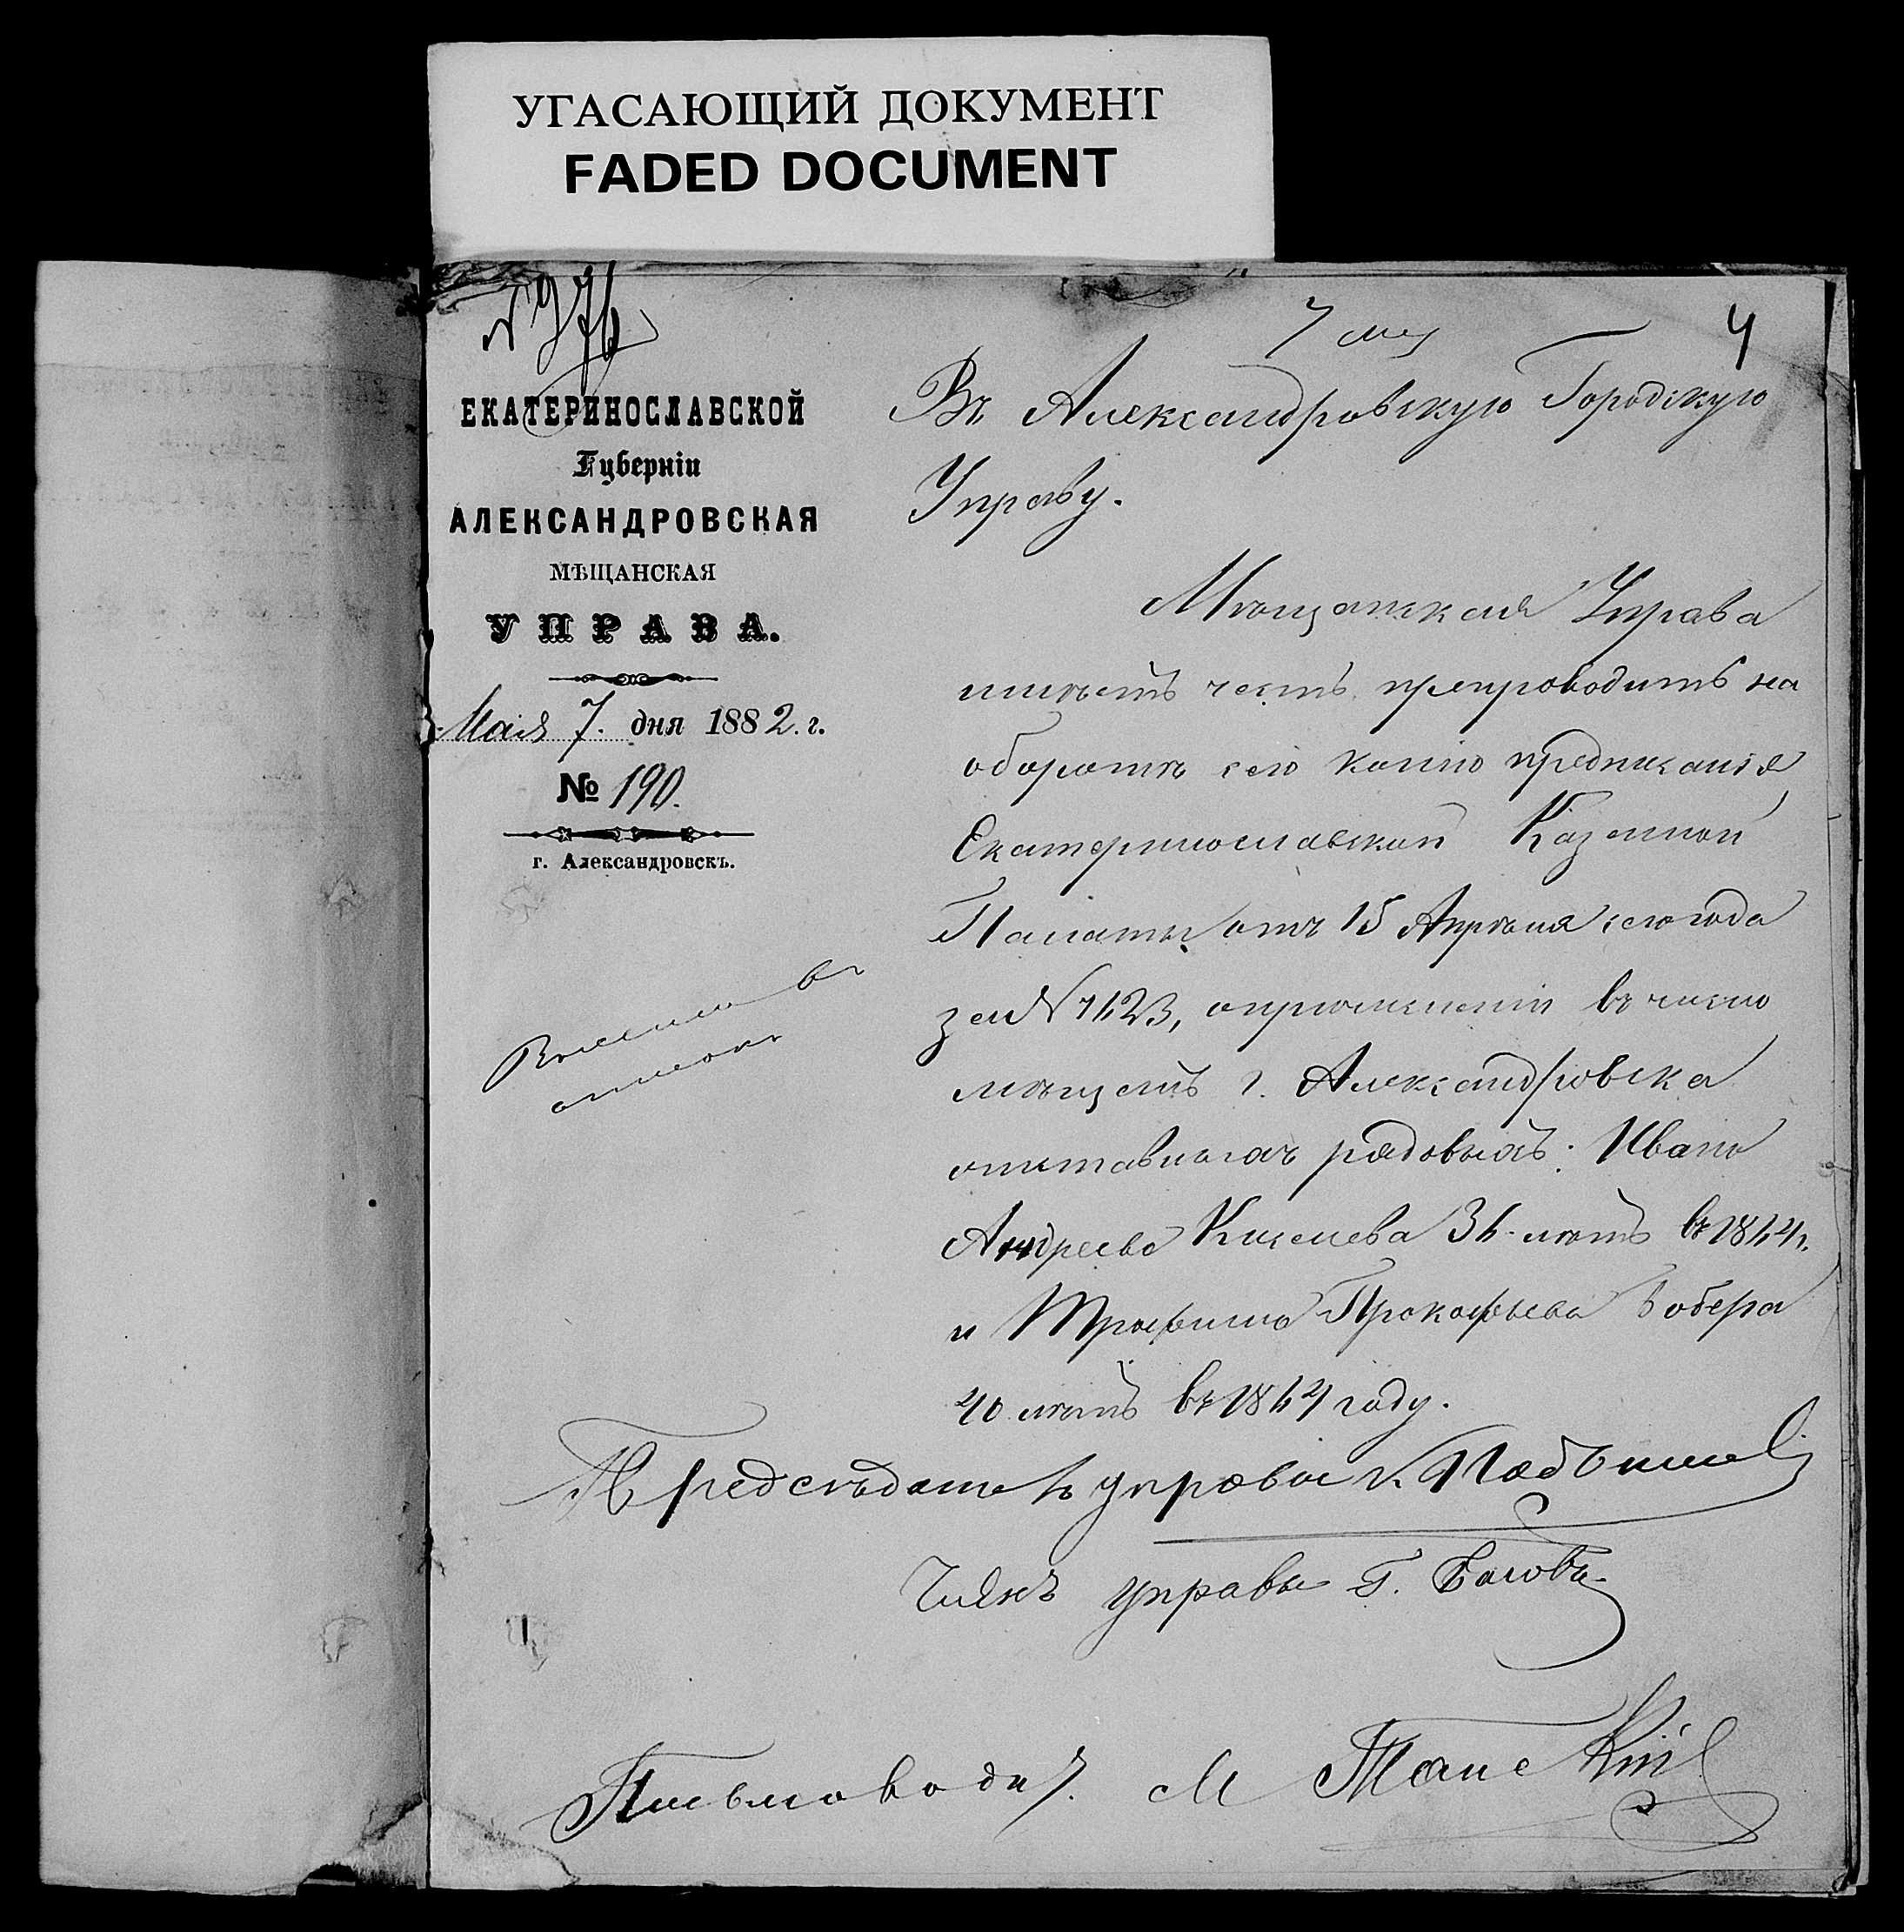 УГАСАЮЩИЙ ДОКУМЕНТ
FADED DOCUMENT
№ 976
7 мая
4
ЕКАТЕРИНОСЛАВСКОЙ
Губерніи
АЛЕКСАНДРОВСКАЯ
МѢЩАНСКАЯ
УПРАВА.
Мая 7. дня 1882. г.
№ 190.
г. Александровскъ.
Въ Александровскую Городскую
Управу.
Мѣщанская Управа
имѣетъ честь препроводить на
оборотѣ сего копію предписанія
Екатеринославской Казенной
Палаты отъ 15 Апрѣля сего года
за № 1123, о причисленіи въ число
мѣщанъ г. Александровска
отставныхъ рядовыхъ: Ивана
Андреева Киселева 36 лѣтъ въ 1874 г.
и Трофима Прокофьева Бобера
40 лѣтъ въ 1874 году.
Предсѣдатель управы
Членъ управы Г.
Письмовод. М